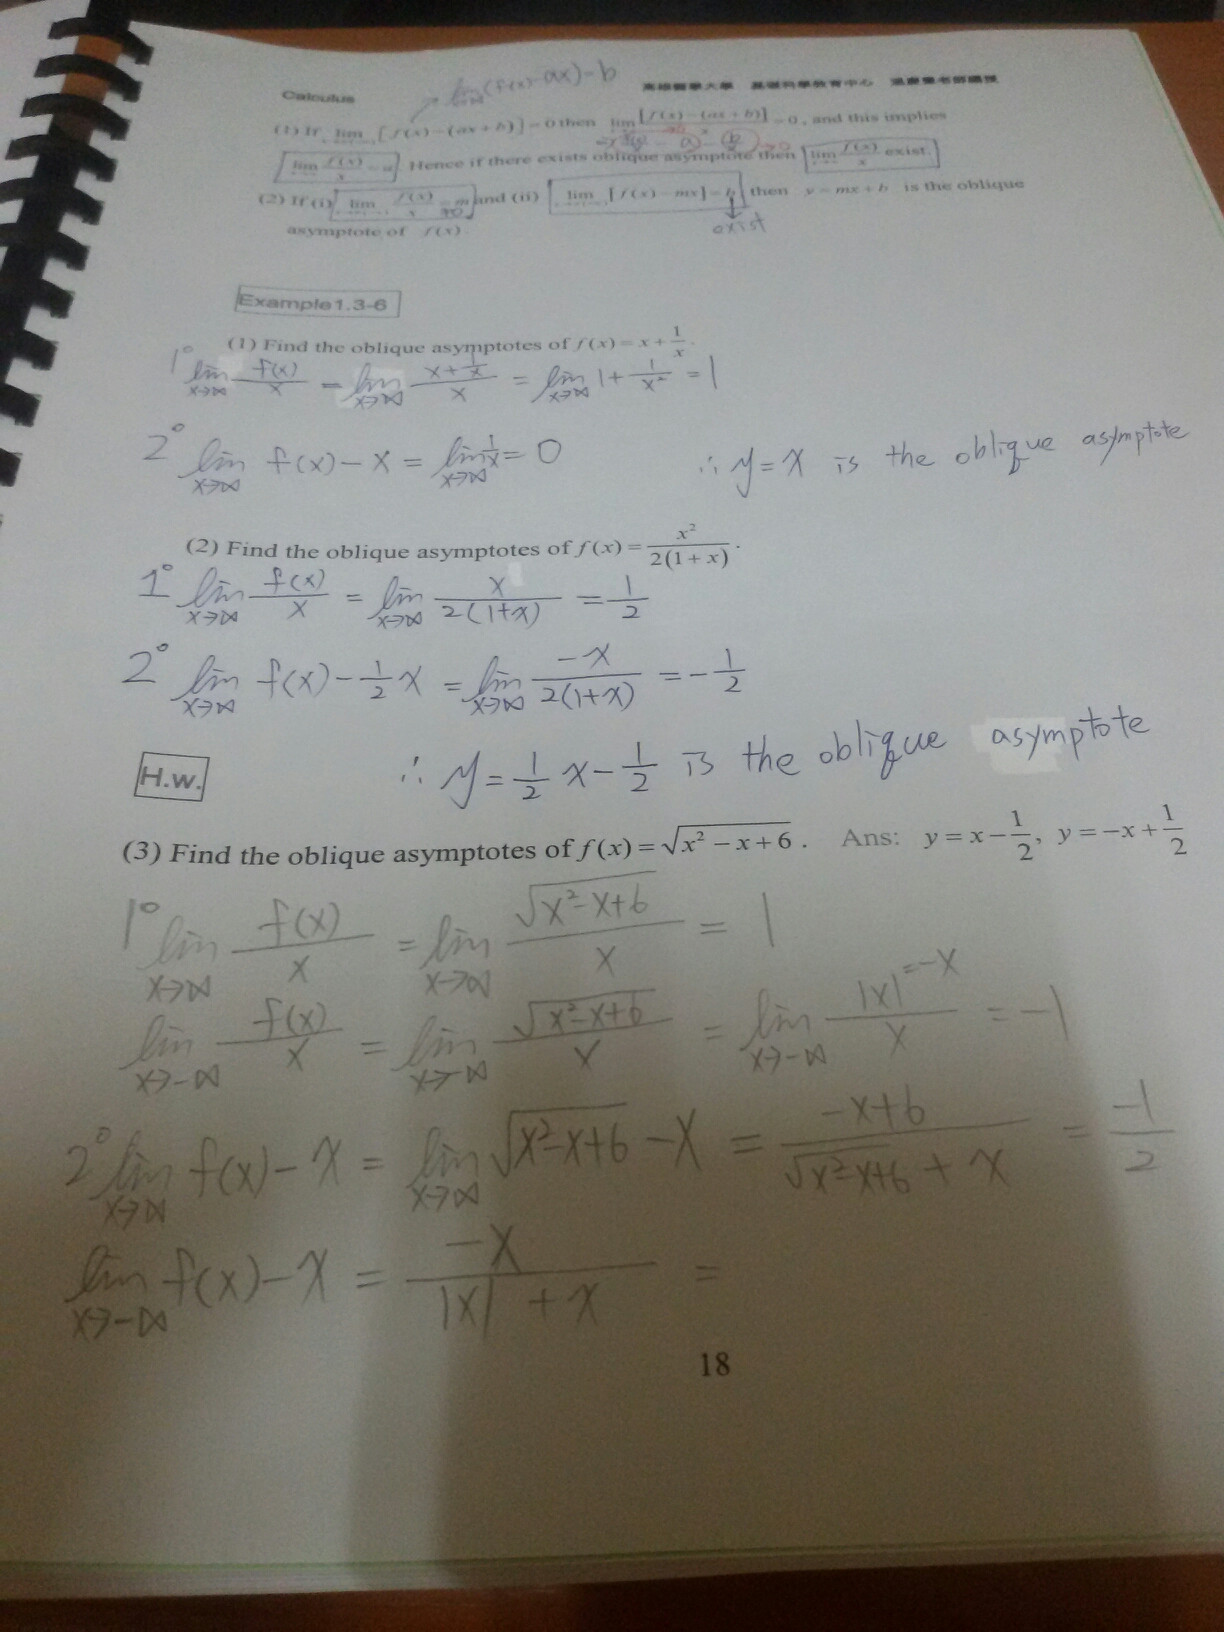 lim (f(x)-ax)=b
Calculus 高雄醫學大學 基礎科學教育中心
(1) If lim [f(x)-(ax+b)]=0 then lim [f(x)-(ax+b)]/x =0, and this implies
lim f(x)/x = a. Hence if there exists oblique asymptote then lim f(x)/x exist.
(2) If (i) lim f(x)/x = m and (ii) lim [f(x)-mx]=b then y=mx+b is the oblique
≠0
exist
asymptote of f(x)
Example1.3-6
(1) Find the oblique asymptotes of f(x)=x+1/x.
1° lim x→∞ f(x)/x = lim x→∞ (x+1/x)/x = lim x→∞ 1+1/x² = 1
2° lim x→∞ f(x)-x = lim x→∞ 1/x = 0 ∴ y=x is the oblique asymptote
(2) Find the oblique asymptotes of f(x)=x²/2(1+x).
1° lim x→∞ f(x)/x = lim x→∞ x/2(1+x) = 1/2
2° lim x→∞ f(x)-1/2 x = lim x→∞ -x/2(1+x) = -1/2
H.w. ∴ y=1/2 x-1/2 is the oblique asymptote
(3) Find the oblique asymptotes of f(x)=√(x²-x+6). Ans: y=x-1/2, y=-x+1/2
1° lim x→∞ f(x)/x = lim x→∞ √(x²-x+6)/x = 1
lim x→-∞ f(x)/x = lim x→-∞ √(x²-x+6)/x = lim x→-∞ |x|=-x/x = -1
2° lim x→∞ f(x)-x = lim x→∞ √(x²-x+6)-x = (-x+6)/(√(x²-x+6)+x) = -1/2
lim x→-∞ f(x)-x = -x/(|x|+x) =
18